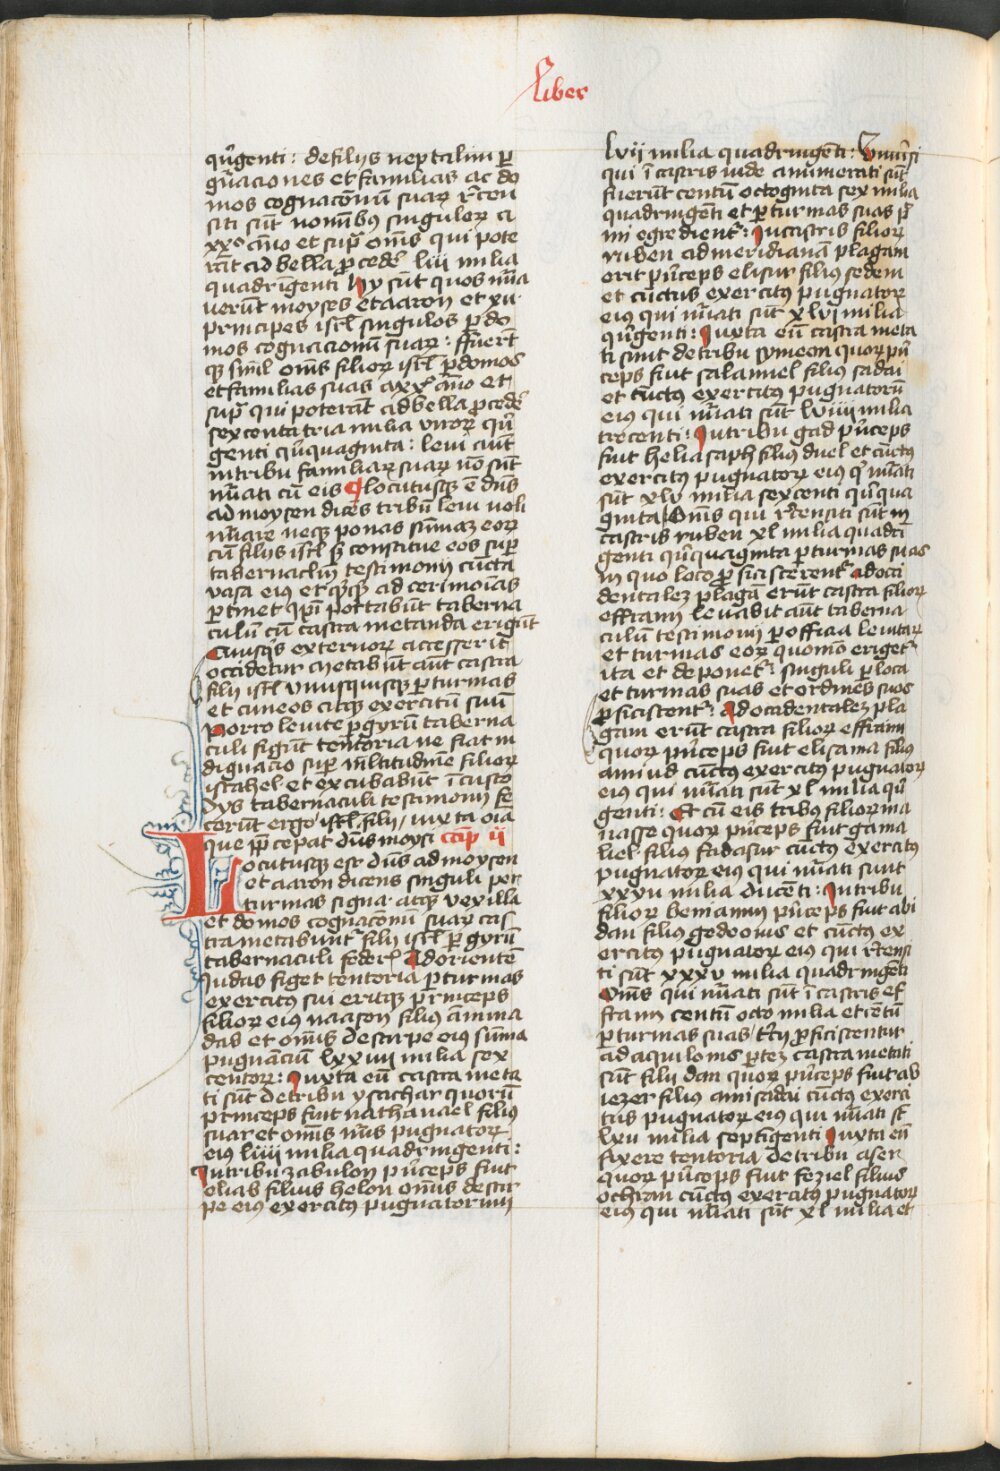 Liber
qu̅genti : de filiis neptalim ꝑ
gn̅aciones et familias ac do
mos cognaconu̅ suaꝝ rece̅
siti su̅t nomi̅bꝰ singuloꝝ a
xxᵒ an̅o et sup̅ om̅s qui pote
ra̅t ad bella ꝓcede̅ liii milia
quadri̅genti hy su̅t quos nu̅a
uerunt moyses et aaron et xii
principes isr̅l singulos ꝑ do
mos cognacionu̅ suaꝝ : ffuer̅t
qꝫ simil om̅s filioꝝ isr̅l ꝑ domos
et familias suas a xxᵒ an̅o et
sup̅ qui potera̅t ad bella ꝓcede̅
sexcenta tria milia viroꝝ qu̅
genti qu̅quaginta : leui aut̅
in tribu familiaꝝ suaꝝ no̅ su̅t
nu̅ati cu̅ eis ¶ locutusqꝫ e̅ dn̅s
ad moysen dice̅s tribu̅ leui noli
nu̅are neqꝫ ponas su̅maꝫ eoꝝ
cu̅ filiis isr̅l sꝫ constitue eos sup̅
tabernaclm̅ testimonii cu̅cta
vasa eiꝰ et qͥcqͥd ad cerimo̅ias
ꝑtinet ip̅i portabu̅t taberna
culu̅ cu̅ castra metanda erigu̅t
Quisqͥs externoꝝ accesserit
occidetur metabu̅t aut̅ castra
filii isr̅l vnusquisqꝫ ꝑ turmas
et cuneos atqꝫ exercitu̅ suu̅
Porro leuite ꝑ gyru̅ taberna
culi fige̅t tentoria ne fiat in
dignacio sup̅ m̅ltitudine̅ filioꝝ
israhel et excubabu̅t i̅ custo
dys tabernaculi testimonii fe
ceru̅t ergo isr̅l filii / iuxta oi̅a
que p̅ceperat dn̅s moysi cap ii
Locutusqꝫ est dn̅s ad moysen
et aaron dicens singuli per
turmas signa atqꝫ vexilla
et domos cognaco̅nu̅ suaꝝ cas
tra metabuntᷣ filii isr̅l ꝑ gyru̅
tabernaculi federꝭ Ad oriente̅
Judas figet tentoria ꝑ turmas
exercitus sui eritqꝫ princeps
filioꝝ eiꝰ naason filiꝰ amina
dab et omnis de stirpe eiꝰ su̅ma
pugnanciu̅ lxxiiii milia sex
centoꝝ : Juxta eu̅ castra meta
ti su̅t de tribu ysachar quoru̅
princeps fuit nathanael filiꝰ
suar et om̅is nu̅s pugnatoꝝ
eiꝰ liiii milia quadringenti :
In tribu zabulon pri̅ceps fuit
oliab filius helon omnis de stir
pe eiꝰ exercitꝰ pugnatorum
lvii milia quadringe̅ti : Vniu̅si
qui i̅ castris iude annumerati su̅t
fueru̅t centu̅ octoginta sex milia
quadringe̅ti et ꝑ turmas suas p̅
mi egredientᷣ : In castris filioꝝ
ruben ad meridiana̅ plagam
erit pri̅ceps elisur filiꝰ sedeur
et cu̅ctus exercitꝰ pugnatoꝝ
eiꝰ qui nu̅ati su̅t xlvi milia
qu̅genti : Juxta eu̅ castra meta
ti sunt de tribu symeon quoꝝ pri̅
ceps fuit salamiel filius sadai
et cu̅ctꝰ exercitꝰ pugnatoru̅
eiꝰ qui nu̅ati su̅t lviiii milia
trecenti : In tribu gad pri̅ceps
fuit heliasaph filiꝰ duel et cu̅ctꝰ
exercitꝰ pugnatoꝝ eiꝰ qͥ nu̅ati
su̅t xlv milia sexcenti qu̅qua
ginta / Om̅s qui rece̅siti su̅t in
castris ruben xl milia quadri
genti qu̅quaginta ꝑ turmas suas
in quo loco ꝓficiscerentᷣ Ad occi
dentaleꝫ plaga̅ eru̅t castra filioꝝ
effraim leuabit aut̅ taberna
culu̅ testimonii ꝑ officia leuitaꝝ
et turmas eoꝝ quomo̅ erigetᷣ
ita et deponetᷣ : singuli ꝑ loca
et turmas suas et ordines suos
ꝓficiscentᷣ : Ad occidentaleꝫ pla
gam eru̅t castra filioꝝ effraim
quoꝝ pri̅ceps fuit elisama filiꝰ
amiud cu̅ctꝰ exercitꝰ pugnatoꝝ
eiꝰ qui nu̅ati su̅t xl milia qu̅
genti : Et cu̅ eis tribꝰ filioꝝ ma
nasse quoꝝ pri̅ceps fuit gama
liel filius fadasur cu̅ctꝰ exercitꝰ
pugnatoꝝ eiꝰ qui nu̅ati sunt
xxxii milia duce̅ti : In tribu
filioꝝ beniamin pri̅ceps fuit abi
dan filiꝰ gedeonis et cu̅ctꝰ ex
ercitꝰ pugnatoꝝ eiꝰ qui rece̅si
ti su̅t xxxv milia quadringe̅ti
Om̅s qui nu̅ati su̅t i̅ castris ef
fraim centu̅ octo milia et ce̅tu̅
ꝑ turmas suas / tercii ꝓficiscentur
ad aquilonis ꝑteꝫ castra metati
su̅t filii dan quoꝝ pri̅ceps fuit ab
iezer filius amisadai cu̅ctꝰ exerci
tus pugnatoꝝ eiꝰ qui nu̅ati st̅
lxii milia septi̅genti Juxta eu̅
fixere tentoria de tribu aser
quoꝝ pri̅ceps fuit feziel filius
ochran cu̅ctꝰ exercitꝰ pugnatoꝝ
eiꝰ qui nu̅ati su̅t xl milia et